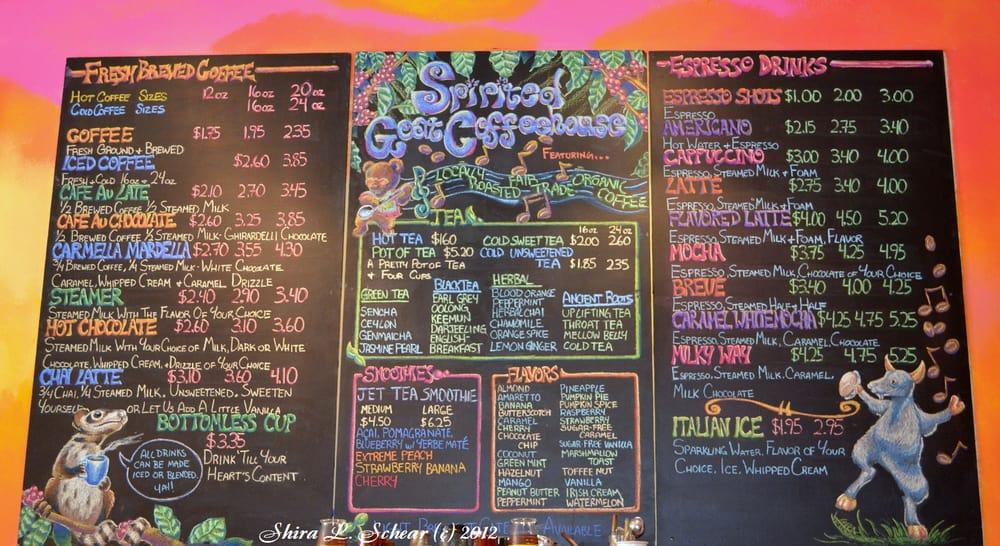 FRESH BREWED COFFEE
HOT COFFEE SIZES 12oz 16oz 20oz
COLD COFFEE SIZES 16oz 24oz
COFFEE $1.75 1.95 2.35
FRESH GROUND & BREWED
ICED COFFEE $2.60 3.85
FRESH & COLD 16oz & 24oz
CAFE AU LATE $2.10 2.70 3.45
1/2 BREWED COFFEE 1/2 STEAMED MILK
CAFE AU CHOCOLATE $2.60 3.25 3.85
1/2 BREWED COFFEE 1/2 STEAMED MILK - GHIRARDELLI CHOCOLATE
CARMELLA MARDELLA $2.70 3.55 4.30
3/4 BREWED COFFEE, 1/4 STEAMED MILK - WHITE CHOCOLATE
CARAMEL, WHIPPED CREAM & CARAMEL DRIZZLE
STEAMER $2.40 2.90 3.40
STEAMED MILK WITH THE FLAVOR OF YOUR CHOICE
HOT CHOCOLATE $2.60 3.10 3.60
STEAMED MILK WITH YOUR CHOICE OF MILK, DARK OR WHITE
CHOCOLATE, WHIPPED CREAM & DRIZZLE OF YOUR CHOICE
CHAI LATTE $3.10 3.60 4.10
3/4 CHAI, 1/4 STEAMED MILK, UNSWEETENED, SWEETEN
YOURSELF OR LET US ADD A LITTLE VANILLA
BOTTOMLESS CUP
$3.35
DRINK 'TILL YOUR
HEART'S CONTENT
ALL DRINKS
CAN BE MADE
ICED OR BLENDED.
YAH!
Spirited
Goat Coffeehouse
FEATURING...
LOCALLY ROASTED FAIR TRADE ORGANIC COFFEE
TEA
16oz 24oz
HOT TEA $1.60 COLD SWEET TEA $2.00 2.60
POT OF TEA $5.20 COLD UNSWEETENED
A PRETTY POT OF TEA TEA $1.85 2.35
& FOUR CUPS
GREEN TEA
SENCHA
CEYLON
GENMAICHA
JASMINE PEARL
BLACK TEA
EARL GREY
OOLONG
KEEMUN
DARJEELING
ENGLISH-
BREAKFAST
HERBAL
BLOOD ORANGE
PEPPERMINT
HERBAL CHAI
CHAMOMILE
ORANGE SPICE
LEMON GINGER
ANCIENT ROOTS
UPLIFTING TEA
THROAT TEA
MELLOW BELLY
COLD TEA
SMOOTHIES
JET TEA SMOOTHIE
MEDIUM LARGE
$4.50 $6.25
ACAI, POMAGRANATE
BLUEBERRY W/ YERBE MATÉ
EXTREME PEACH
STRAWBERRY BANANA
CHERRY
FLAVORS
ALMOND
AMARETTO
BANANA
BUTTERSCOTCH
CARAMEL
CHERRY
CHOCOLATE
CHIP
COCONUT
GREEN MINT
HAZELNUT
MANGO
PEANUT BUTTER
PEPPERMINT
PINEAPPLE
PUMPKIN PIE
PUMPKIN SPICE
RASPBERRY
STRAWBERRY
SUGAR-FREE
CARAMEL
SUGAR FREE VANILLA
MARSHMALLOW
TOAST
TOFFEE NUT
VANILLA
IRISH CREAM
WATERMELON
AVAILABLE
ESPRESSO DRINKS
ESPRESSO SHOTS $1.00 2.00 3.00
ESPRESSO
AMERICANO $2.15 2.75 3.40
HOT WATER & ESPRESSO
CAPPUCCINO $3.00 3.40 4.00
ESPRESSO, STEAMED MILK & FOAM
LATTE $2.75 3.40 4.00
ESPRESSO, STEAMED MILK & FOAM
FLAVORED LATTE $4.00 4.50 5.20
ESPRESSO, STEAMED MILK & FOAM, FLAVOR
MOCHA $3.75 4.25 4.95
ESPRESSO, STEAMED MILK, CHOCOLATE OF YOUR CHOICE
BREVE $3.40 4.00 4.25
ESPRESSO, STEAMED HALF & HALF
CARAMEL WHITE MOCHA $4.25 4.75 5.25
ESPRESSO, STEAMED MILK, CARAMEL, CHOCOLATE
MILKY WAY $4.25 4.75 5.25
ESPRESSO, STEAMED MILK, CARAMEL,
MILK CHOCOLATE
ITALIAN ICE $1.95 2.95
SPARKLING WATER, FLAVOR OF YOUR
CHOICE, ICE, WHIPPED CREAM
Shira L. Schear (c) 2012